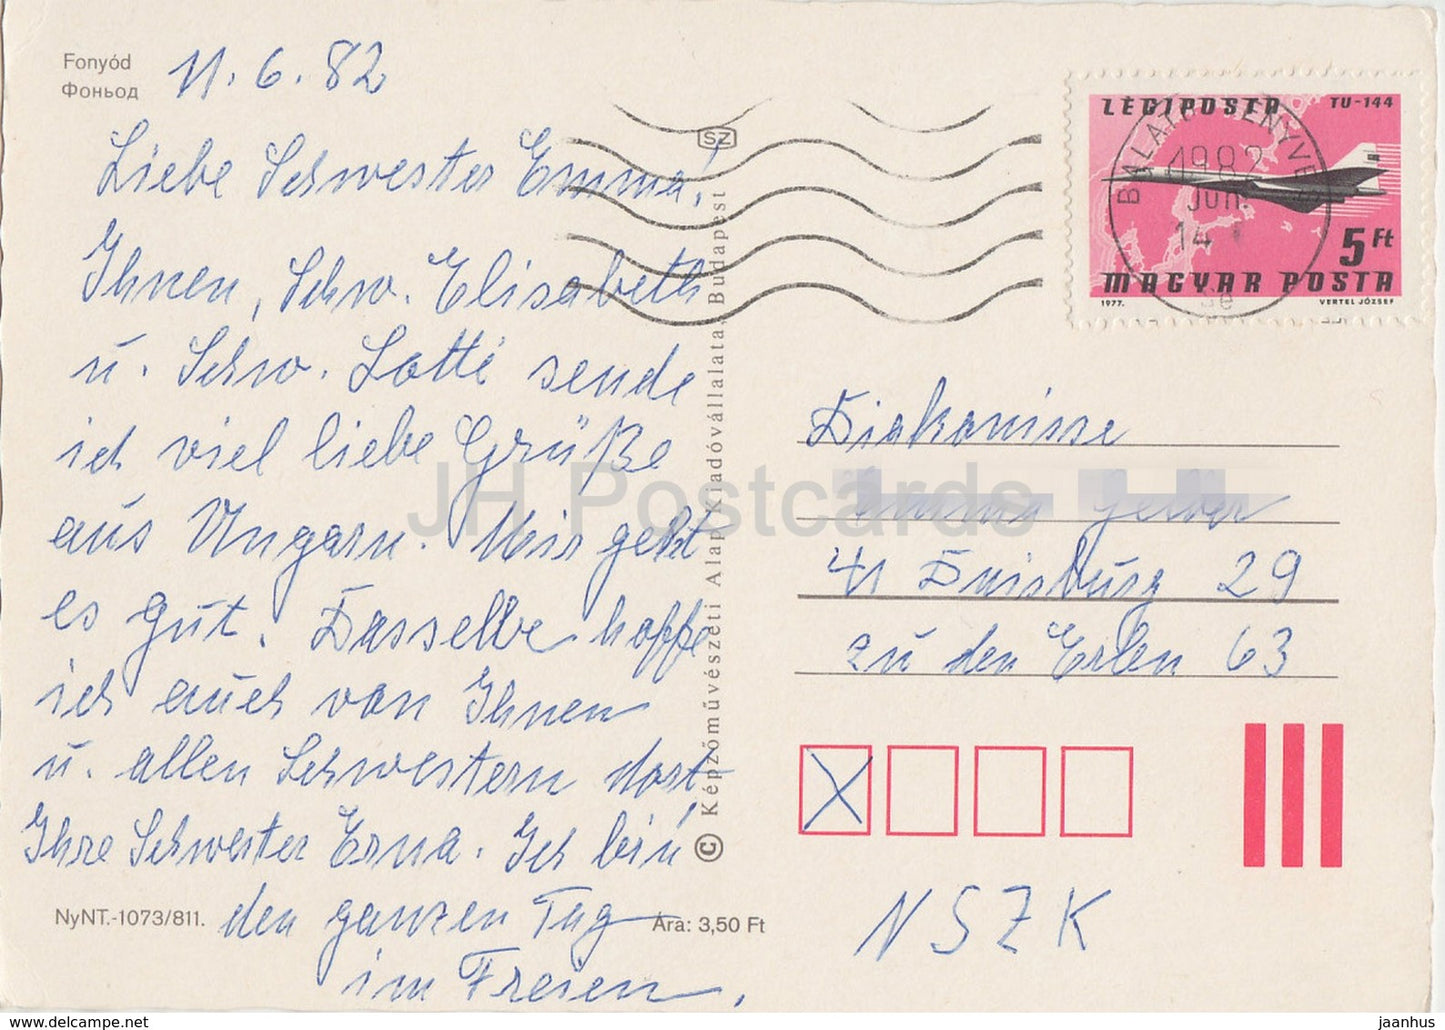 Fonyód
Фоньод
11.6.82
Liebe Schwester Emma!
Ihnen, Schw. Elisabeth
u. Schw. Lotte sende
ich viel liebe Grüße
aus Ungarn. Mir geht
es gut. Dasselbe hoffe
ich auch von Ihnen
u. allen Schwestern dort
Ihre Schwester Erna. Ich bin
den ganzen Tag
im Freien.
NyNT.-1073/811.
Ára: 3,50 Ft
© Képzőművészeti Alap Kiadóvállalata, Budapest
SZ
LÉGIPOSTA TU-144
BALATONFENYVES
1982 JUN. 14
5 Ft
MAGYAR POSTA
1977. VERTEL JÓZSEF
Diakonisse
41 Duisburg 29
zu den Erlen 63
NSZK
JH Postcards
www.delcampe.net
jaanhus